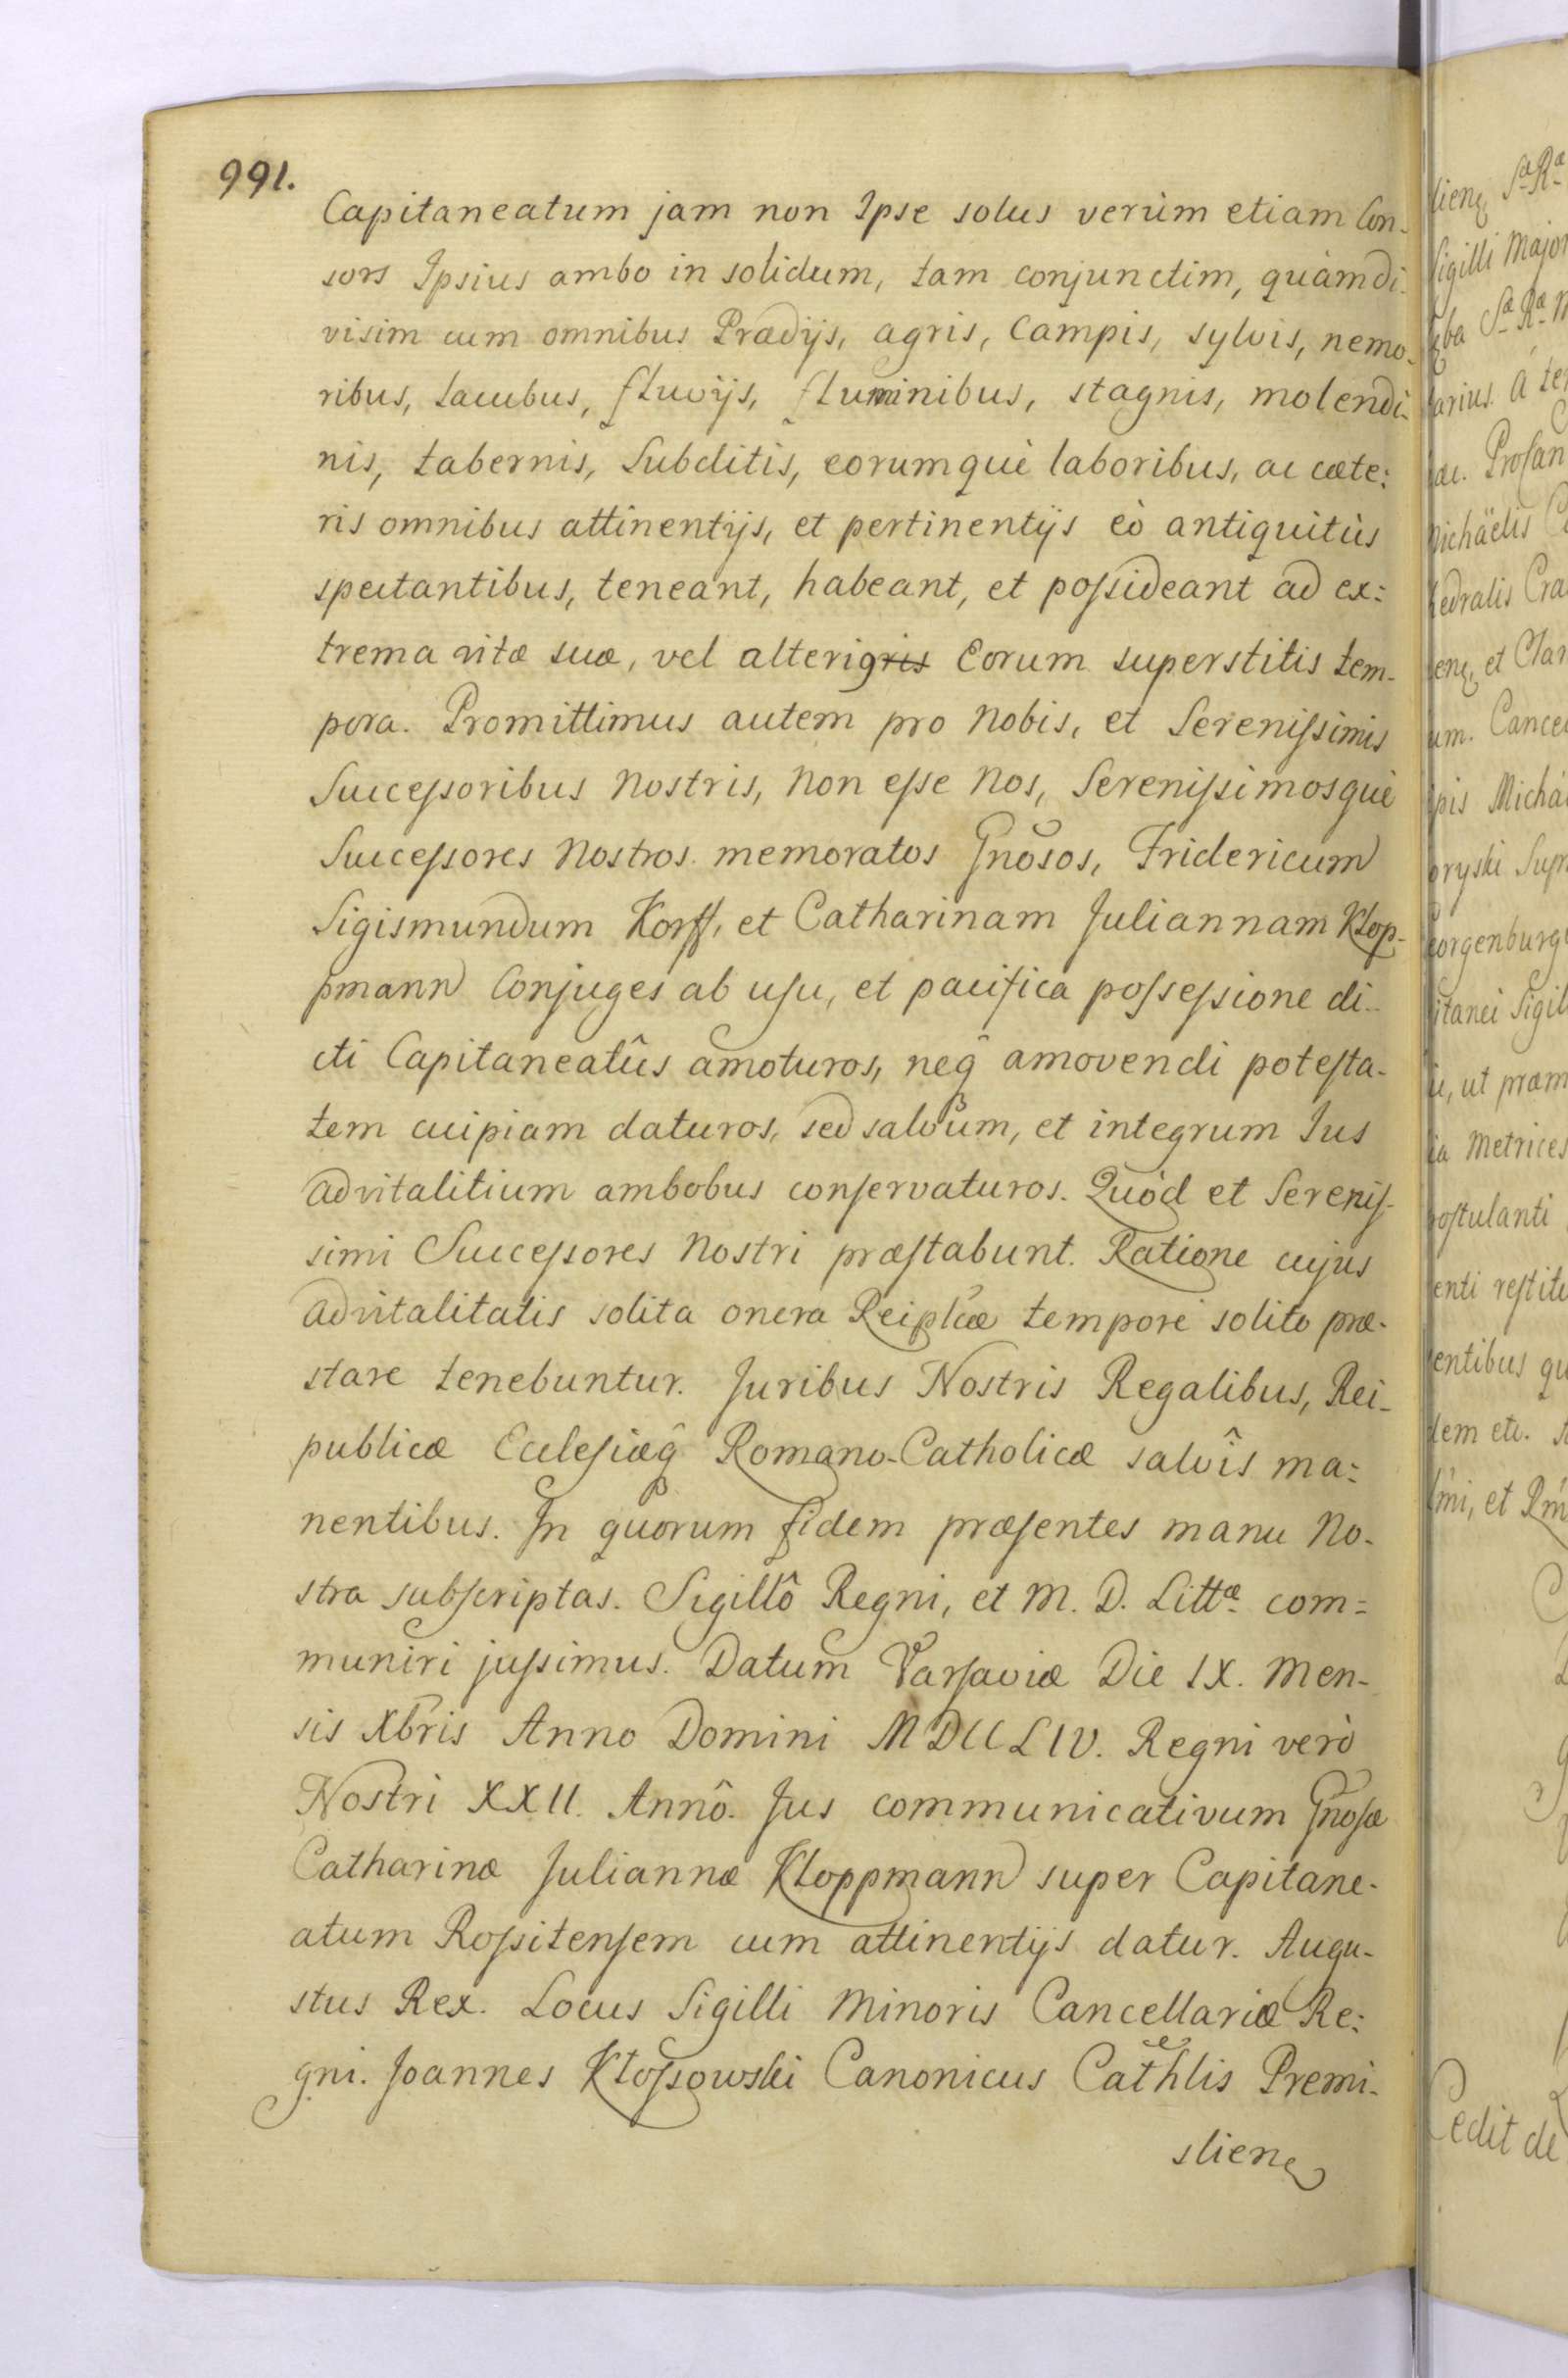 991.
Capitaneatum jam non Ipse solus verùm etiam Con-
sors Ipsius ambo in solidum, tam conjunctim, quàm di-
visim cum omnibus Prædijs, agris, Campis, sylvis, nemo-
ribus, Lacubus, fluvijs, fluminibus, stagnis, molendi-
nis, tabernis, Subditis, eorumquè laboribus, ac cæte:
ris omnibus attinentijs, et pertinentijs eò antiquitùs
spectantibus, teneant, habeant, et poſsideant ad ex:
trema vitæ suæ, vel alterigris Eorum superstitis tem-
pora. Promittimus autem pro Nobis, et Sereniſsimis
Succeſsoribus Nostris, Non eſse Nos, Sereniſsimosquè
Succeſsores Nostros memoratos Gnõsos, Fridericum
Sigismundum Korff, et Catharinam Juliannam Klop-
pmann Conjuges ab uſu, et pacifica poſseſsione di-
cti Capitaneatûs amoturos, neq̂ amovendi poteſta-
tem cuipiam daturos, sed salvum, et integrum Jus
advitalitium ambobus conſervaturos. Quòd et Sereniſ-
simi Succeſsores Nostri præſtabunt. Ratione cujus
advitalitatis solita onera Reiplcæ tempore solito præ-
stare tenebuntur. Juribus Nostris Regalibus, Rei-
publicæ Eccleſiæq̂ Romano-Catholicæ salvîs ma:
nentibus. In quorum fidem præſentes manu No-
stra subſcriptas. Sigillô Regni, et M. D. Littæ com=
muniri juſsimus. Datum Varſaviæ Die IX. Men-
sis Xbris Anno Domini MDCCLIV. Regni verò
Nostri XXII. Annô. Jus communicativum Gnoſæ
Catharinæ Juliannæ Kloppmann super Capitane-
atum Roſsitenſem cum attinentijs datur. Augu-
stus Rex. Locus Sigilli Minoris Cancellariæ Re:
gni. Joannes Kłoſsowski Canonicus Cathlis Premi-
slien